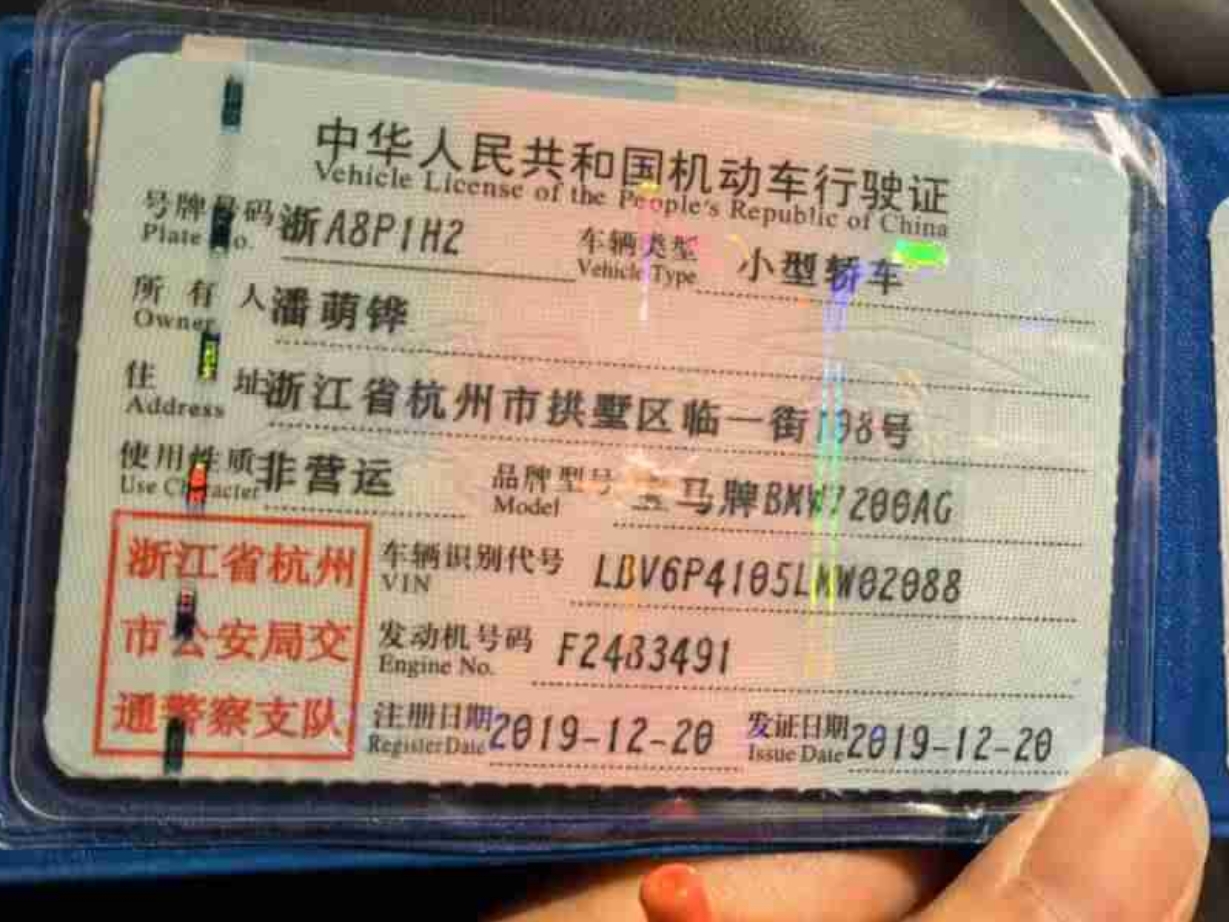 中华人民共和国机动车行驶证
Vehicle License of the People's Republic of China
号牌号码 浙A8P1H2 车辆类型 小型轿车
Plate No. Vehicle Type
所有人 潘萌铧
Owner
住址 浙江省杭州市拱墅区临一街198号
Address
使用性质 非营运 品牌型号 宝马牌BMW7200AG
Use Character Model
浙江省杭州
市公安局交
通警察支队
车辆识别代号 LBV6P4105LMW02088
VIN
发动机号码 F2483491
Engine No.
注册日期 2019-12-20 发证日期 2019-12-20
Register Date Issue Date